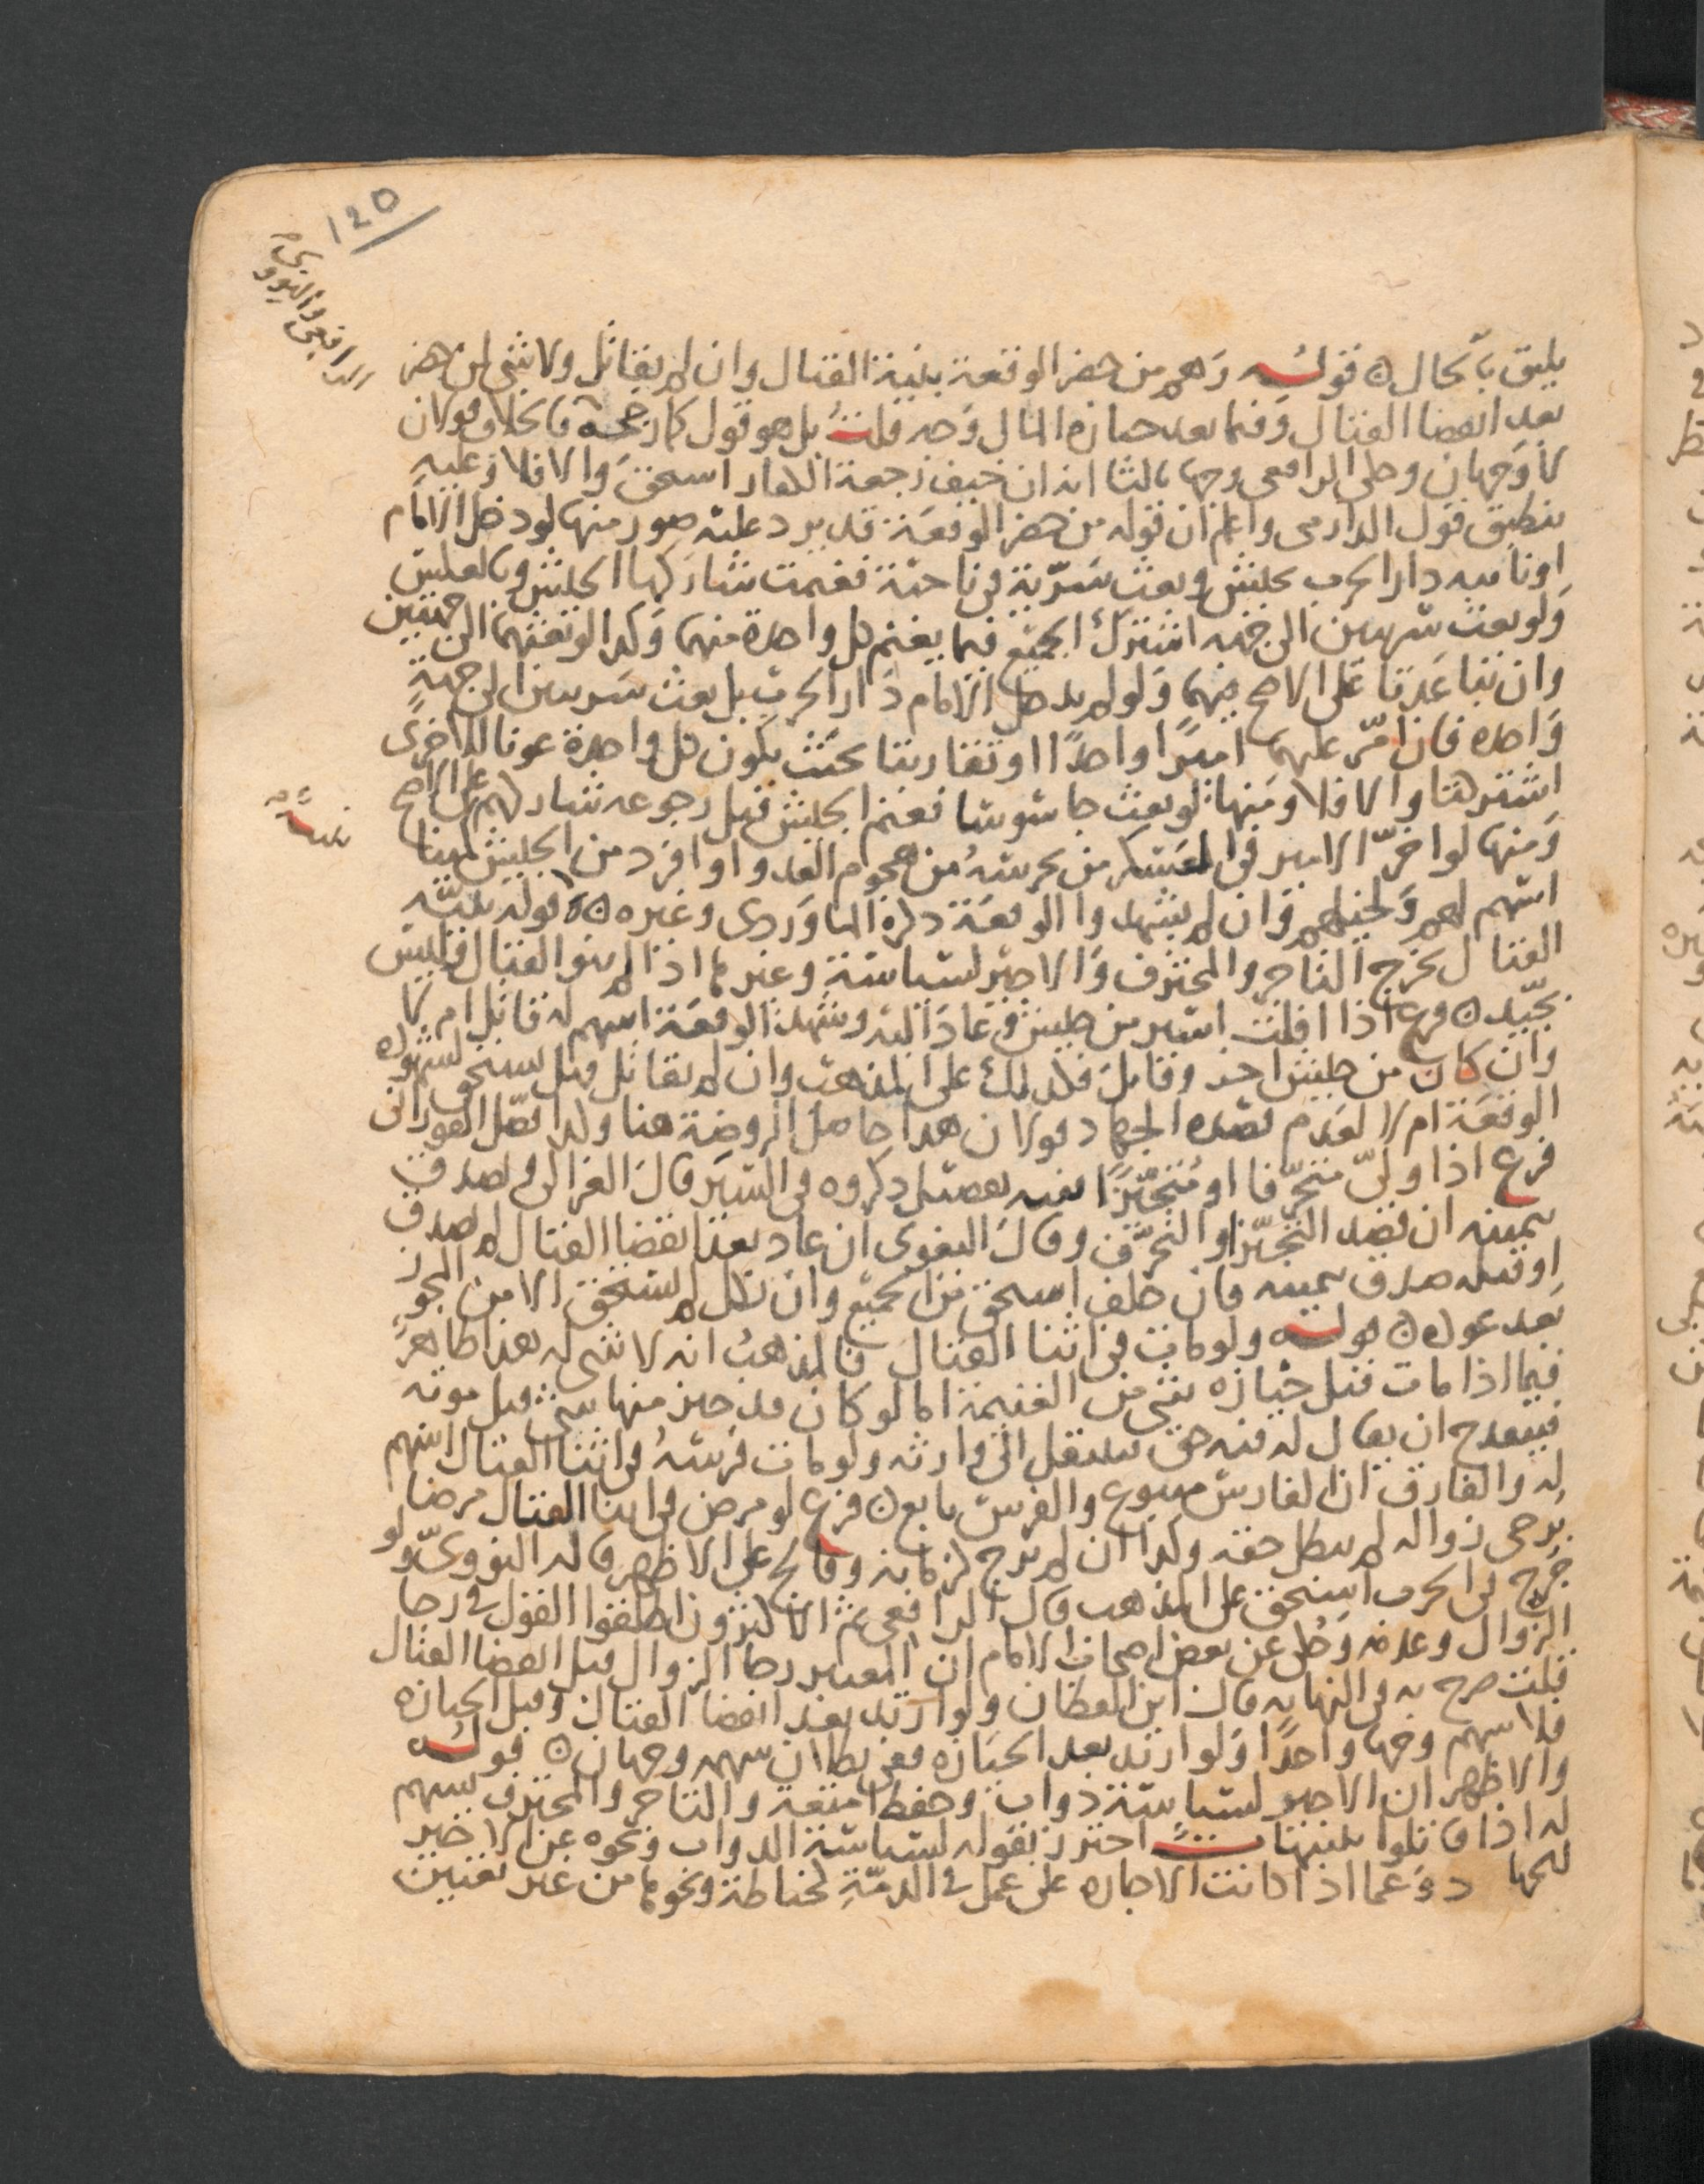 120
الرافعى والنووى
يليق بالحال ۞ قوله وهم من حضر الوقعة بنية القتال وان لم يقاتل ولا شى لمن حضر
بعد انقضا القتال وفيما بعد حيازه المال وجه قلت بل هو قول كما رجحه فالخلاف قولان
لا وجهان وحكى الرافعى وجها ثالثا انه ان خيف رجعة الكفار استحق والا فلا وعليه
ينطبق قول الدارمى واعلم ان قوله من حضر الوقعة قد يرد عليه صور منها لو دخل الامام
او نايبه دار الحرب بجيش وبعث سرية فى ناحية فغنمت شاركها الجيش وبالعكس
ولو بعث سريتين الى جهه اشترك الجميع فيما يغنم كل واحدة منهما وكذا لو بعثهما الى جهتين
وان تباعدتا على الاصح فيهما ولو لم يدخل الامام دار الحرب بل بعث سريتين الى جهة
واحده فان امّر عليهما اميرا واحدًا او تقاربتا بحيث يكون كل واحدة عونا للاخرى
اشتركتا والا فلا ومنها لو بعث جاسوسا فغنم الجيش قبل رجوعه شاركهم على الاصح
ومنها لو اخّر الامير فى العسكر من يحرسه من هجوم العدو او افرد من الجيش كمينا
اسهم لهم ولجيشهم وان لم يشهدوا الوقعة ذكره الماوردى وغيره ۞ قوله بنيّه
القتال يخرج التاجر والمحترف والاجير لسياسة وغيرها اذا لم ينو القتال وليس
بجيّد ۞ فرع اذا افلت اسير من جيش وعاد اليه وشهد الوقعة اسهم له قاتل ام لا
وان كان من جيش اخر وقاتل فكذلك على المذهب وان لم يقاتل فهل يستحق لشهوده
الوقعة ام لا لعدم قصده الجهاد قولان هذا حاصل الروضة هنا ولذا فصّل الفورانى
فرع اذا ولّى متحرّفا او متحيّزًا ففيه تفصيل ذكروه فى السير قال الغزالى ويصدق
بيمينه ان قصد التحيّز او التحرّف وقال البغوى ان عاد بعد انقضا القتال لم يصدق
او قبله صدق بيمينه فان حلف استحق من الجميع وان نكل لم يستحق الا من المحوز
بعد عوده ۞ قوله ولو مات فى اثنا القتال فالمذهب انه لا شى له هذا ظاهر
فيما اذا مات قبل حيازه شى من الغنيمة اما لو كان قد حيز منها شى قبل موته
فيتعدح ان يقال له فيه حق فينتقل الى وارثه ولو مات فرسه فى اثنا القتال اسهم
له والفارق ان الفارس متبوع والفرس تابع ۞ فرع لو مرض فى اثنا القتال مرضا
يرجى زواله لم يبطل حقه وكذا ان لم يرج لزمانه وفالج على الاظهر قاله النووىّ ولو
جرح فى الحرب استحق على المذهب قال الرافعى ثم الاكثرون اطلقوا القول فى رجا
الزوال وعدمه وحكى عن بعض اصحاب الامام ان المعتبر رجا الزوال قبل انقضا القتال
قلت صرح به فى النهايه قال ابن القطان ولو ارتد بعد انقضا القتال وقبل الحيازه
فلا سهم وجها واحدًا ولو ارتد بعد الحيازه ففى بطلان سهمه وجهان ۞ قوله
والاظهر ان الاجير لسياسة دواب وحفظ امتعة والتاجر والمحترف يسهم
له اذا قاتلوا تنبيهات احترز بقوله لسياسة الدواب ونحوه عن الاجير
للجهاد وعما اذا كانت الاجاره على عمل فى الذمّة كخياطة ونحوها من غير تعيين